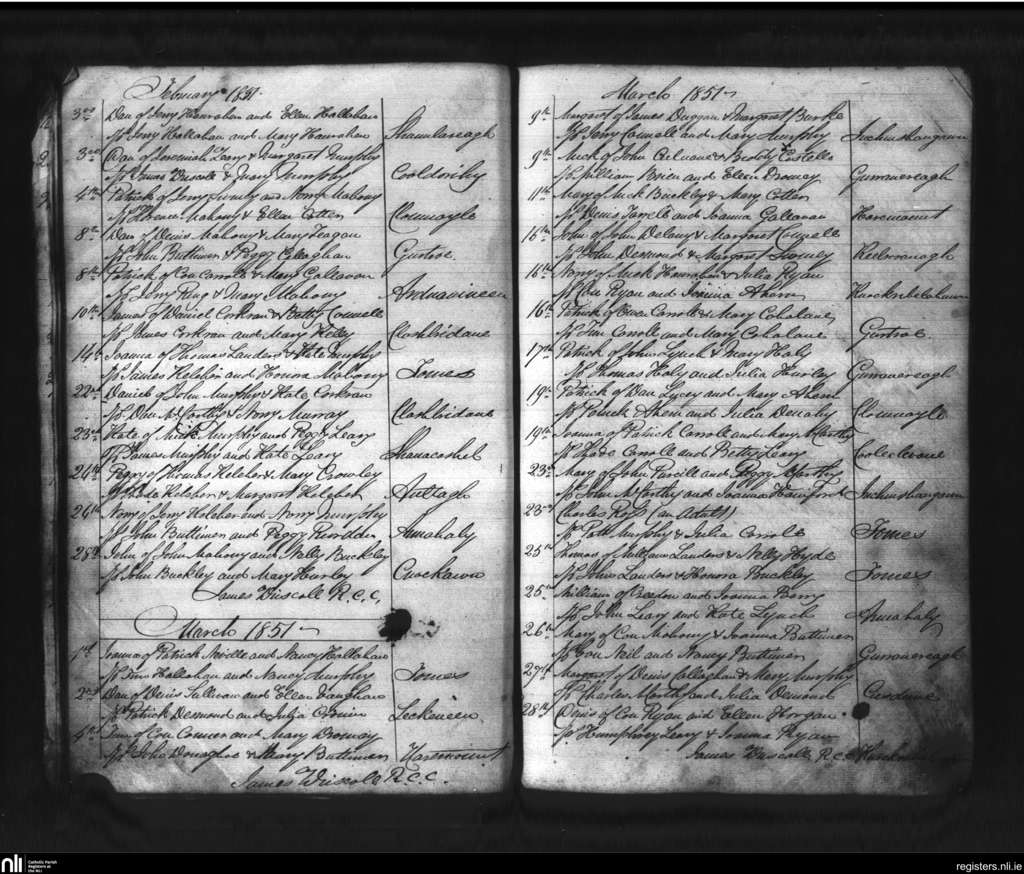 February 1851
3rd Dan of Jerry Hanrahan and Ellen Hallahan
Sps Jerry Hallahan and Mary Hanrahan Shanlareagh
3rd Dan of Jeremiah Leary & Margaret Murphy
Sps James Driscoll & Mary Murphy Cooldorihy
4th Patrick of Jerry and Norry Mahony
Sps Florence Mahony & Ellen Cotter Clonmoyle
8th Dan of Denis Mahony & Mary Feagan
Sps John Buttimer & Peggy Callaghan Gurtroe
8th Patrick of Con Carroll & Mary Gallavan
Sps Jerry Ring & Mary Mahony
10th James of Daniel Corkran & Betty Connell
Sps James Corkran and Mary Clashbidane
14th Joanna of Thomas Landers & Kate Murphy
Sps James Kelehir and Honora Mahony Tomes
22nd Daniel of John Murphy & Kate Corkran
Sps Den McCarthy & Norry Murray Clashbidane
23rd Kate of Mick Murphy and Peggy Leary
Sps James Murphy and Kate Leary Shanacashel
24th Peggy of Thomas Keleher & Mary Crowley
Keleher & Margaret Keleher Aultagh
26th Norry of Jerry Keleher and Norry Murphy
Sps John Buttimer and Peggy Riordan Anahaly
28th John of John Mahony and Nelly Buckley
Sps John Buckley and Mary Hurley Crookawn
James Driscoll R.C.C.
March 1851
1st Joanna of Patrick Neville and Nancy Hallahan
Sps Tim Hallahan and Nancy Murphy Tomes
2nd Dan of Denis Sullivan and Ellen Vaughan
Sps Patrick Desmond and Julia O'Brien Leckeneen
of Con Connor and Mary Dromey
Sps John Donaghoe & Mary Buttimer Haremount
James Driscoll R.C.C.
March 1851
9th Margaret of James Duggan & Margaret Burke
Sps Jerry Connell and Mary Murphy
9th Mick of John & Betsy Costello
Sps William Brien and Ellen Dromey Gurranereagh
11th Mary of Mick Buckley & Mary Cotter
Sps Denis Farrell and Joanna Gallavan Haremount
15th John of John Delany & Margaret Connell
Sps John Desmond & Margaret Twomey
Norry of Mick Hanrahan & Julia Ryan
Ryan and Joanna Ahern
16th Patrick of Owen Carroll & Mary Cohalane
Sps Tim Carroll and Mary Cohalane Gurtroe
17th Patrick of John Lynch & Mary Haly
Sps Thomas Haly and Julia Hurley Gurranereagh
19th Patrick of Dan Lucey and Mary Ahern
Sps Patrick Ahern and Julia Clonmoyle
19th Joanna of Patrick Carroll and Mary McCarthy
Carroll and Betty Leary
23rd Mary of John Purcill and Peggy McCarthy
Sps John McCarthy and Joanna Hanford
23rd Charles Ross (an Adult)
Sps Patk Murphy & Julia Carroll Tomes
25th Thomas of William Landers & Nelly Hyde
Sps John Landers & Honora Buckley Tomes
25th William of and Joanna Barry
Sps John Leary and Kate Lynch Anahaly
26th Mary of Con Mahony & Joanna Buttimer
Sps Con Neil and Nancy Buttimer Gurranereagh
27th Margaret of Denis Callaghan & Mary Murphy
Sps Charles McCarthy and Julia Desmond
28th Denis of Con Ryan and Ellen Horgan
Sps Humphrey Leary & Joanna Ryan
James Driscoll R.C.C.
nli
Catholic Parish
Registers at
the NLI
registers.nli.ie